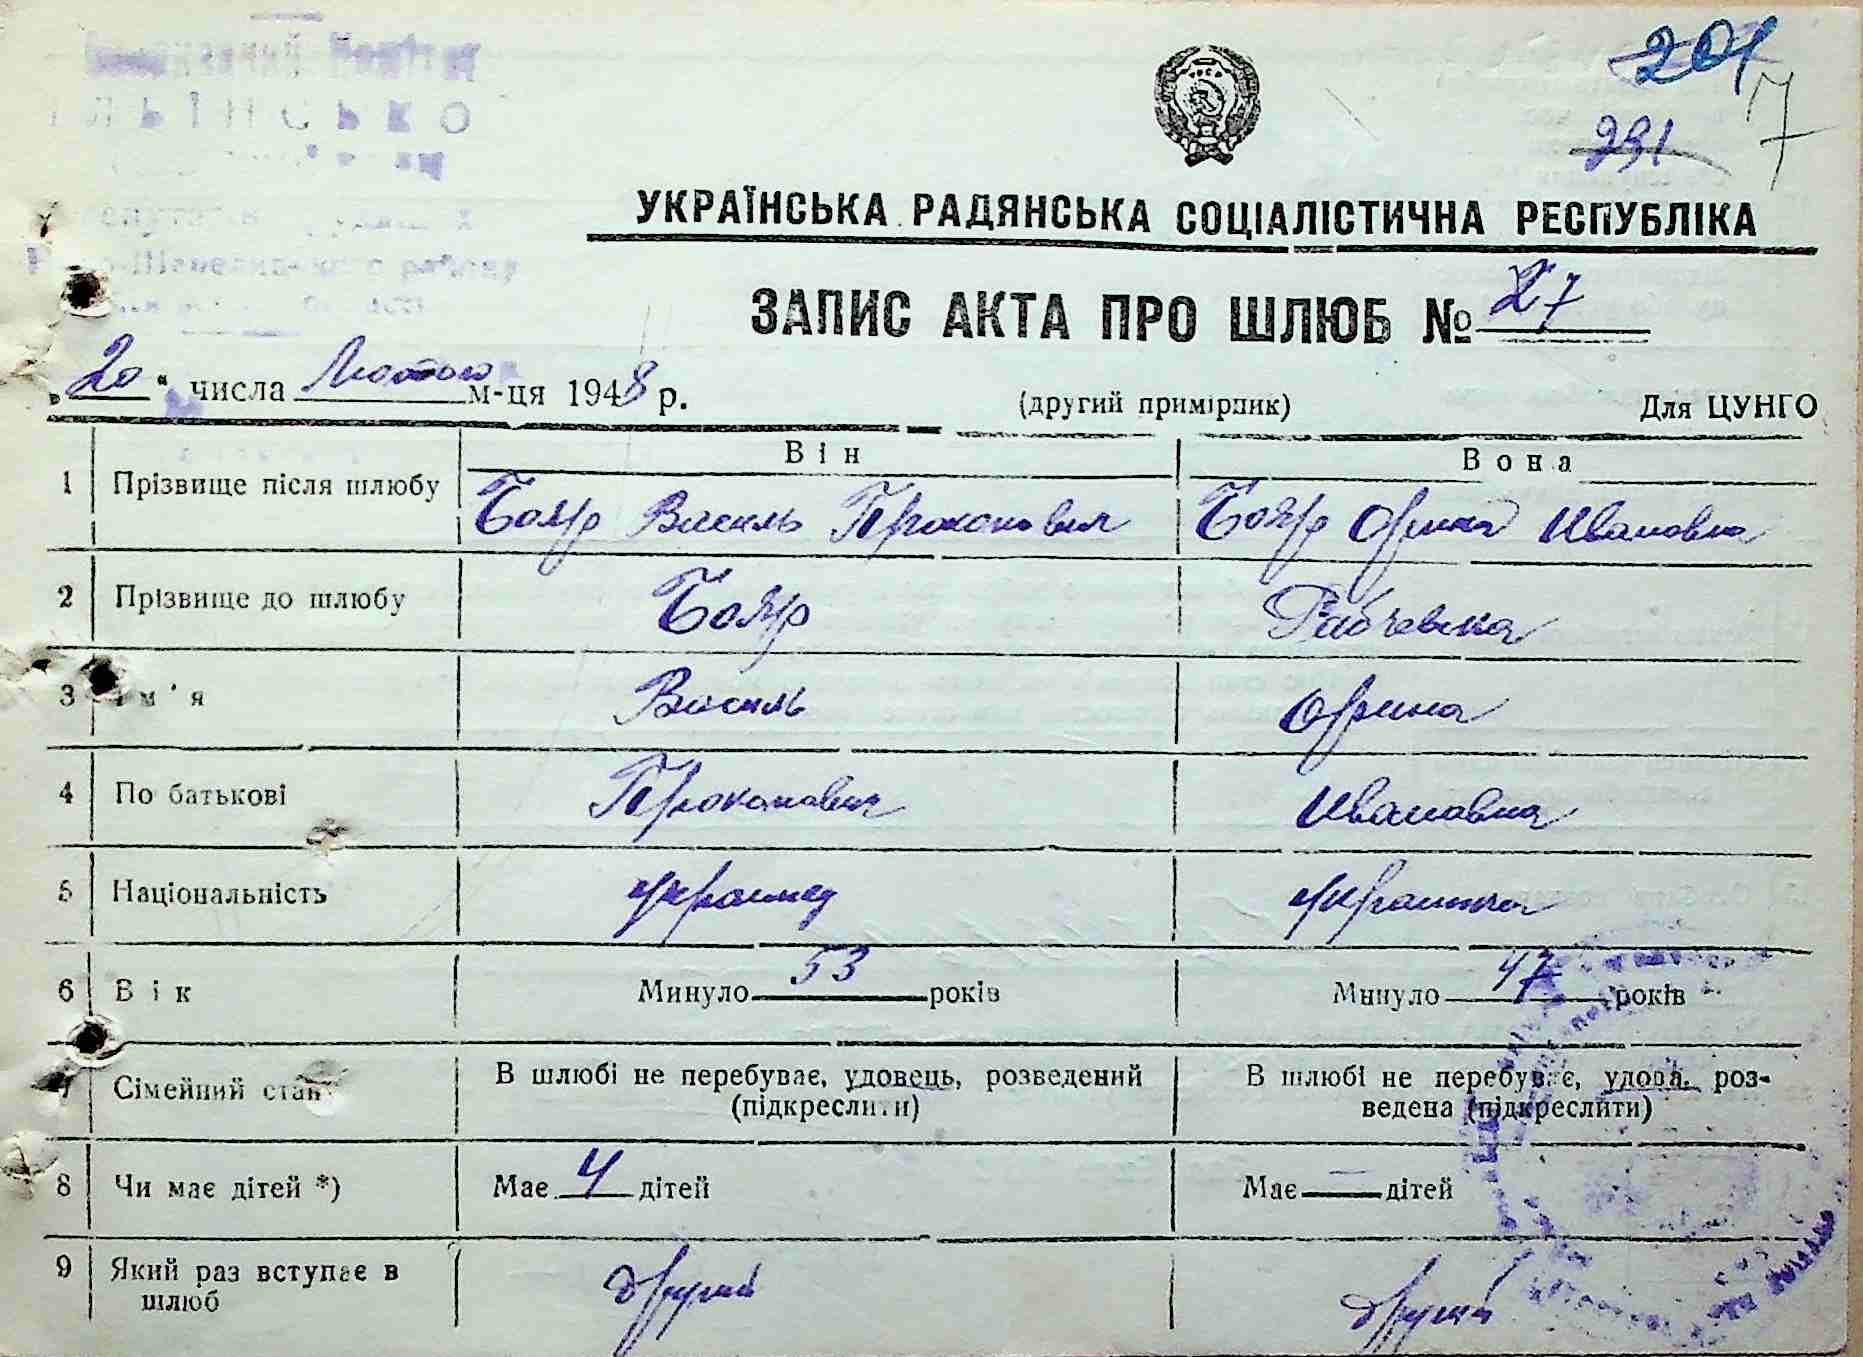 201
291
7
УКРАЇНСЬКА РАДЯНСЬКА СОЦІАЛІСТИЧНА РЕСПУБЛІКА
ЗАПИС АКТА ПРО ШЛЮБ № 27
„20“ числа Лютого м-ця 1948 р. (другий примірник) Для ЦУНГО
Він Вона
1 Прізвище після шлюбу Бояр Василь Прокопович Бояр Орина Ивановна
2 Прізвище до шлюбу Бояр
3 Ім'я Василь Орина
4 По батькові Прокопович Ивановна
5 Національність украинец украинка
6 Вік Минуло 53 років Минуло 47 років
7 Сімейний стан В шлюбі не перебуває, удовець, розведений В шлюбі не перебуває, удова, роз-
(підкреслити) ведена (підкреслити)
8 Чи має дітей *) Має 4 дітей Має — дітей
9 Який раз вступає в другий другий
шлюб